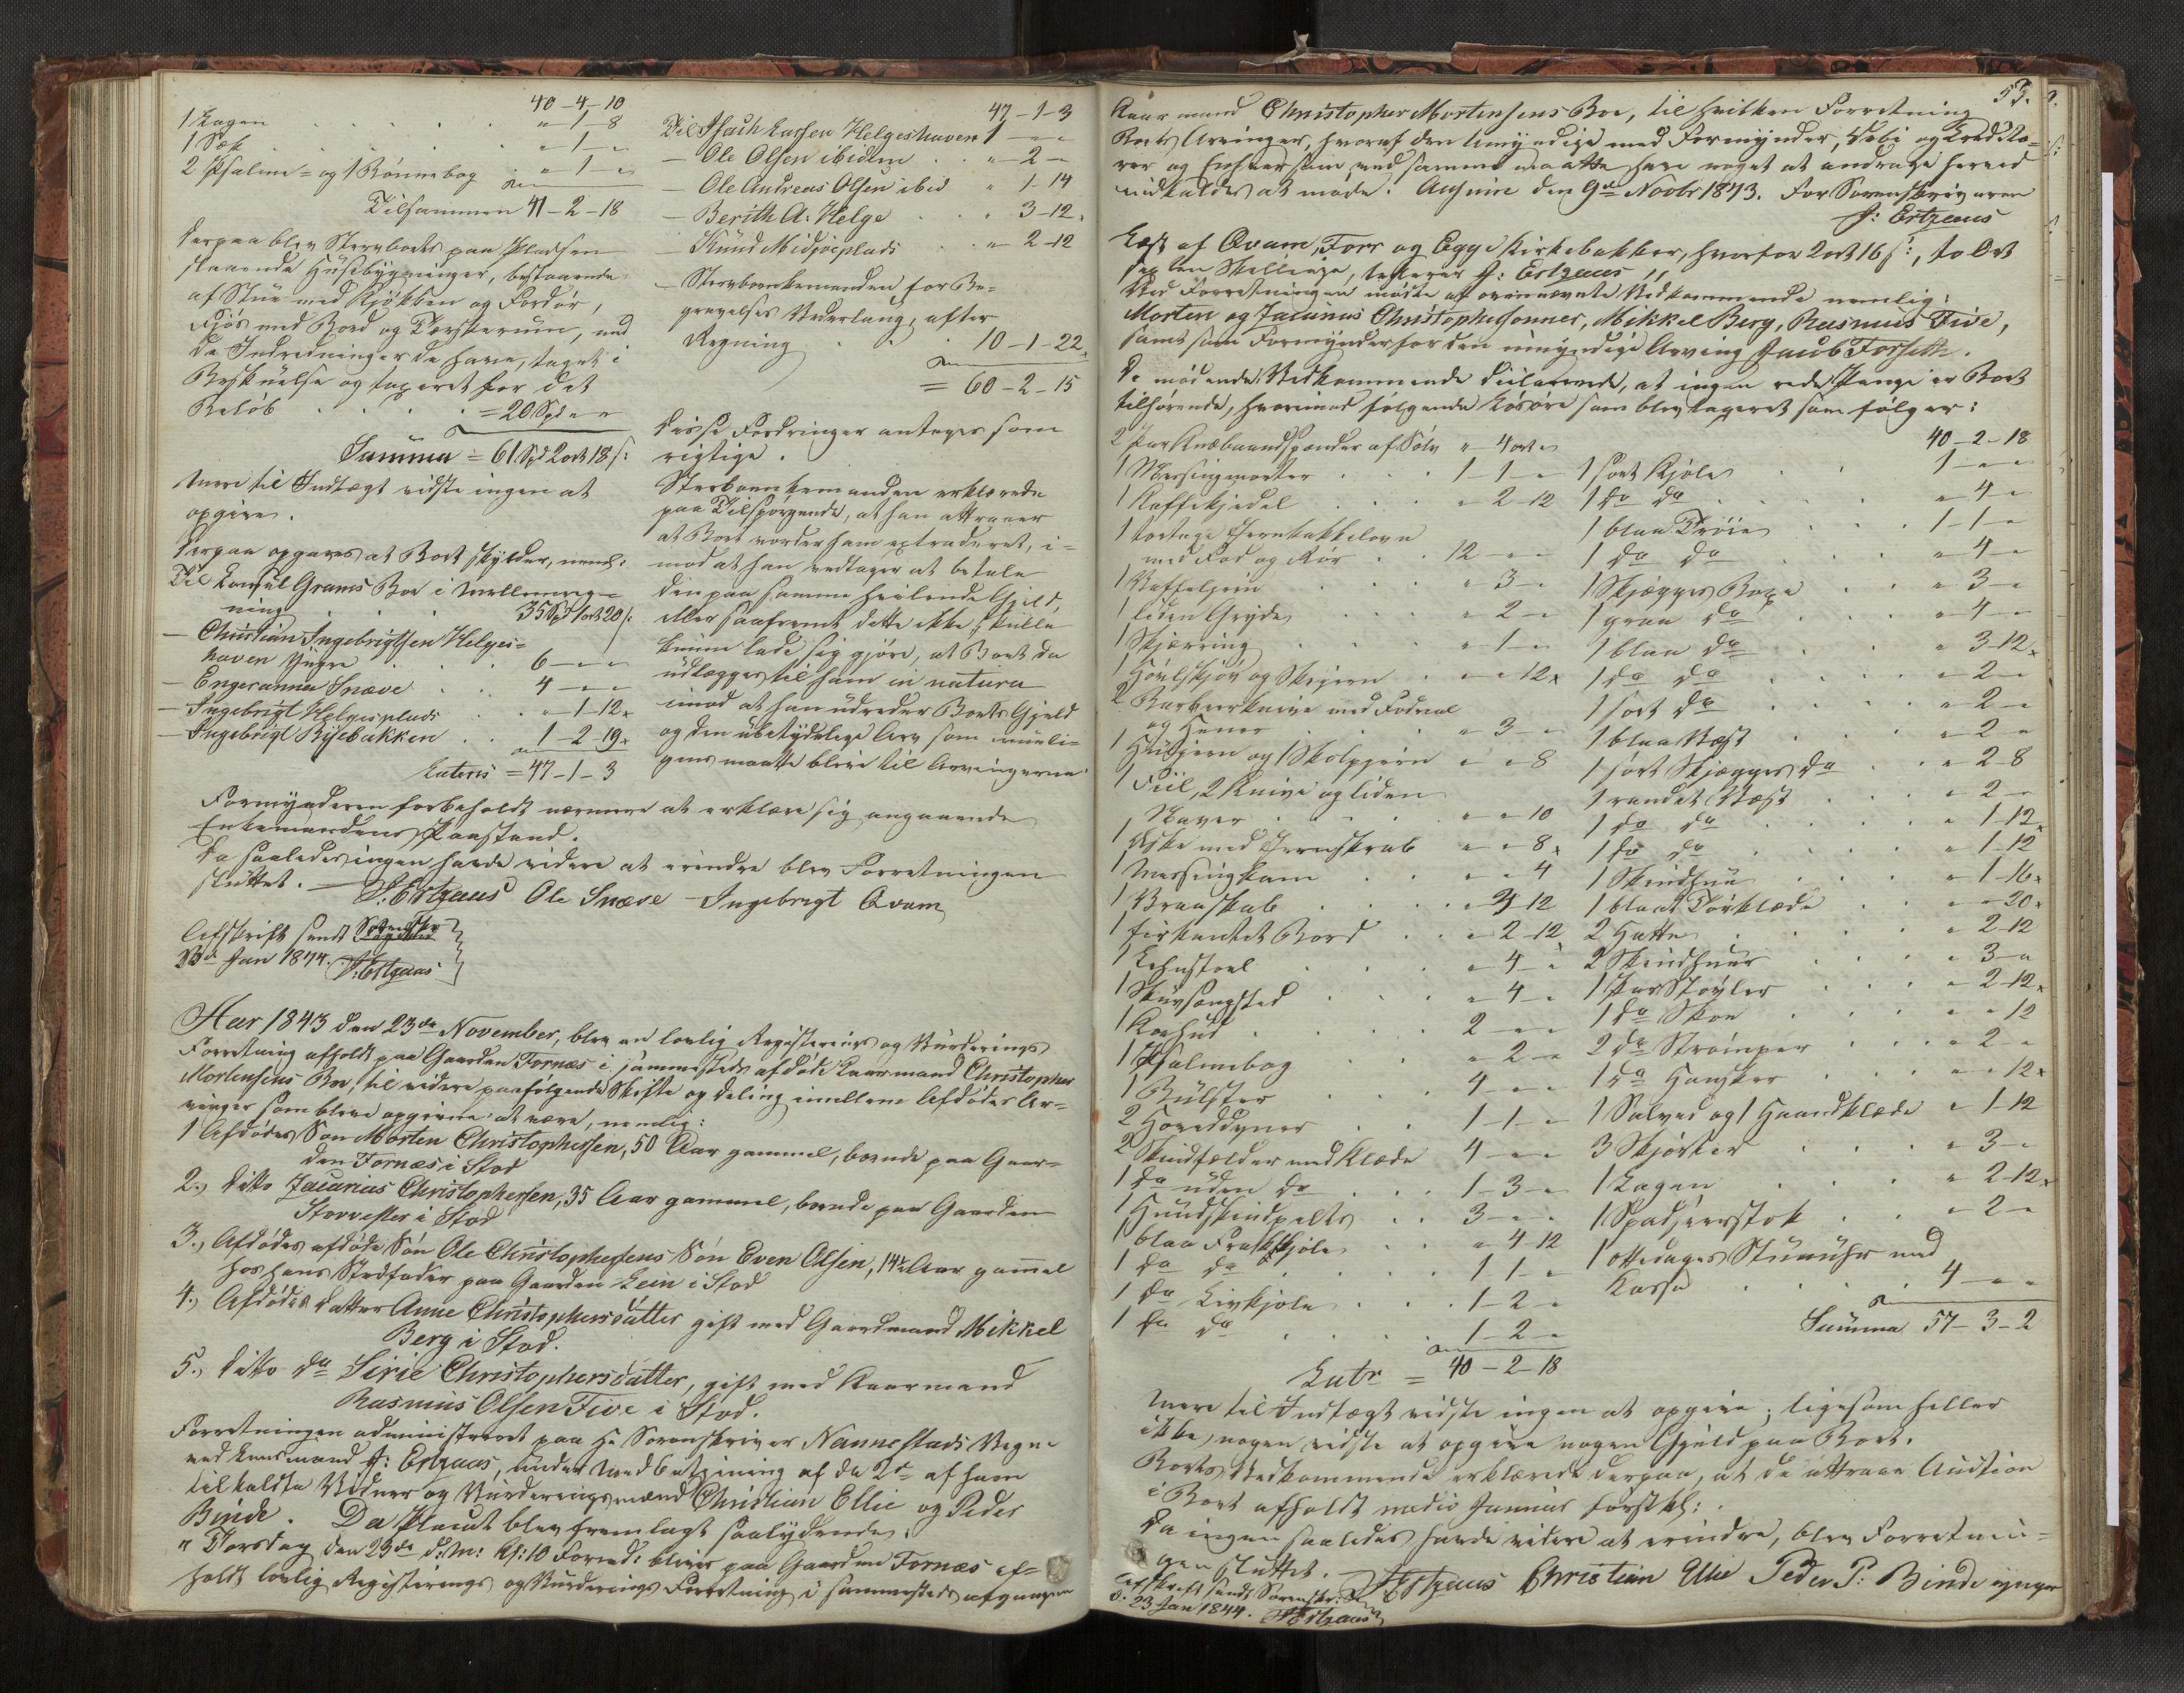 40-4-10
1 Lagen . . . . . " 1-8
1 Sæk . . . . . " 1-"
2 Psalme- og 1 Bønnebog " 1-"
Tilsammen 41-2-18
Derpaa blev Stervboets paa Pladsen
staaende Huusebygninger, bestaaende
af Stue med Kjøkken og Fordør,
Fjøs med Bord og Tærskerum, med
de Indredninger de have, taget i
Beskuelse og taxeret for det
Beløb . . . . = 20 Spd " "
Summa = 61 Spd 2 ort 18 s:
Mere til Indtægt vidste ingen at
opgive.
Derpaa opgaves at Boet skylder, neml:
Til Consul Grams Boe i Mellemreg-
ning . . . 35 Spd 1 ort 20 s:
— Christian Ingebrigtsen Helges-
haven Yngre . . 6-"-"
— Engeranna Snæve . . 4-"-"
— Ingebrigt Helgesplads . . "-1-12
— Ingebrigt Byebakken . . 1-2-19
Lateris = 47-1-3
47-1-3
Til Isach Larsen Helgeshaven 1-"-"
— Ole Olsen ibidem . . "-2-"
— Ole Andreas Olsen ibid " 1-14
— Berith A: Helge . . " 3-12
— Knud Midjoeplads . . "-2-12
— Stervboenkemanden for Be-
gravelses Vederlaug, efter
Regning . . . 10-1-22
= 60-2-15
Disse Fordringer antoges som
rigtige.
Sterboenkemanden erklærede
paa Tilspørgende, at han attraaer
at Boet vorder ham extraderet, i-
mod at han vedtager at betale
den paa samme hvilende Gjeld,
eller saafremt dette ikke skulle
kunne lade sig gjøre, at Boet da
udlægges til ham in natura
imod at han udreder Boets Gjeld
og den ubetydelige Arv som mueli-
gens maatte blive til Arvingerne.
Formynderen forbeholdt nærmere at erklære sig angaaende
Enkemandens Paastand.
Da saaledes ingen havde videre at erindre blev Forretningen
sluttet. — J: Estzaas Ole Snæve - Ingebrigt Qvam
Afskrift sendt Sorenskr
Jan 1844. J: Estzaas
Aar 1843 den 23de November, blev en lovlig Registerings og Vurderings
Forretning afholdt paa Gaarden Fornæs i sammesteds afdøde Kaarmand Christopher
Mortensens Boe, til videre paafølgende Skifte og Deling imellem Afdødes Ar-
vinger som bleve opgivne at være, nemlig:
1 Afdødes Søn Morten Christophersen, 50 Aar gammel, boende paa Gaar-
den Fornæs i Stod
2., Ditto Zacarias Christophersen, 35 Aar gammel, boende paa Gaarden
i Stod
3., Afdødes afdøde Søn Ole Christophersens Søn Even Olsen, 14½ Aar gamel
hos hans Stedfader paa Gaarden Lein i Stod
4., Afdødes Datter Anne Christophersdatter gift med Gaardmand Mikkel
Berg i Stod.
5., Ditto do Sirie Christophersdatter, gift med Kaarmand
Rasmus Olsen Five i Stod.
Forretningen administreret paa Hr Sorenskriver Nannestads Vegne
ved Lensmand J: Estzaas, under Medbetjening af de 2de af ham
tilkaldte Vidner og Vurderingsmænd Christian Ellie og Peder
Binde. Da Placat blev fremlagt saalydende:
"Torsdag den 23de d: M: Kl: 10 Formd: bliver paa Gaarden Fornæs af-
holdt lovlig Registerings og Vurderings Forretning i sammesteds afgangne
53.
Kaarmand Christopher Mortensens Boe, til hvilken Forretning
Boets Arvinger, hvoraf den Umyndige med Formynder, Debi og Credito-
rer og Enhver som ved samme maatte have noget at andrage herved
indkaldes at møde. den 9de Novbr 1843. For Sorenskriveren
J: Estzaas
Læst af Qvam, Forr og Egge Kirkebakker, hvorfor 2 ort 16 s:, to Ort
sexten Skillinge, J: Estzaas "
Ved Forretningen mødte af ovennævnte Vedkommende nemlig:
Morten og Zacarias Christophersønner, Mikkel Berg, Rasmus Five,
samt som Formynder for den umyndige Arving Jacob Forseth.
De mødende Vedkommende declarerede, at ingen rede Penge er Boet
tilhørende, hvorimod følgende Løsøre som blev taxeret som følger:
2 Par Knæbaandspænder af Sølv " 4 ort "
1 Messingmorter . . 1-1-"
1 Kaffekjedel . . "-2-12
1 toetages Jernkakkelovn
med Fod og Rør . . 12-"-"
1 Vaffeljern . . "-3-"
1 liden Gryde . . "-2-"
1 Skjærring . . "-1-"
1 og . "-"-12
2 Barbeerknive med Foderal
og . . "-3-"
1 og 1 "-"-8
1 Fiil, 2 Knive og liden
Naver . . . "-"-10
1 Æske med Jernskrab "-"-8
1 Messingkam . . "-"-4
1 Vraaskab . . "-3-12
1 firkantet Bord . . "-2-12
1 Lehnstoel . . "-4-"
1 Skuvsengsted . . "-4-"
1 Koehud . . . 2-"-"
1 Psalmebog . . "-2-"
1 Bulster . . . 4-"-"
2 Hoveddyner . . 1-1-"
2 Skindfælder med Klæde 4-"-"
1 do uden do . . 1-3-"
1 Hundskindpelts . . 3-"-"
1 blaa Frakkkjole . "-4-12
1 do do . . . 1-1-"
1 do Livkjole . . 1-2-"
1 do do . . . 1-2-"
Latr = 40-2-18
40-2-18
1 sort Kjole . . 1-"-"
1 do do . . . "-4-"
1 blaa Trøie . . 1-1-"
1 do do . . "-4-"
1 Skjægges Boxe . . "-3-"
1 graa do . . "-4-"
1 blaa do . . "-3-12
1 do do . . "-2-"
1 sort do . . "-2-"
1 blaa Væst . . "-2-"
1 sort Skjægges do . "-2-8
1 randet Væst . . "-2-"
1 do do . . "-1-12
1 do do . . "-1-12
1 Skindhue . . "-1-16
1 blaat Tørklæde . "-"-20
2 Hatte . . . "-2-12
2 Skindhuer . . "-3-"
1 Par Støvler . . "-2-12
1 do Skoe . . "-"-12
2 do Strømper . . "-2-"
1 do Handsker . . "-"-12
1 Salved og 1 Haandklæde "-1-12
3 Skjorter . . "-3-"
1 Lagen . . "-2-12
1 Spadseerstok . . "-2-"
1 ottedages Stueuhr med
Kasse . . . 4-"-"
Summa 57-3-2
Mere til Indtægt vidste ingen at opgive; ligesom heller
ikke nogen vidste at opgive nogen Gjeld paa Boet.
Boets Vedkommende erklærede derpaa, at de attraae Auction
i Boet afholdt medio Januar førstkl:.
Da ingen saaledes havde videre at erindre, blev Forretnin-
gen sluttet. — J: Estzaas Christian Ellie Peder P: Binde yngre
Afskrift sendt Sorenskr: d.
d. 23 Jan 1844. J: Estzaas